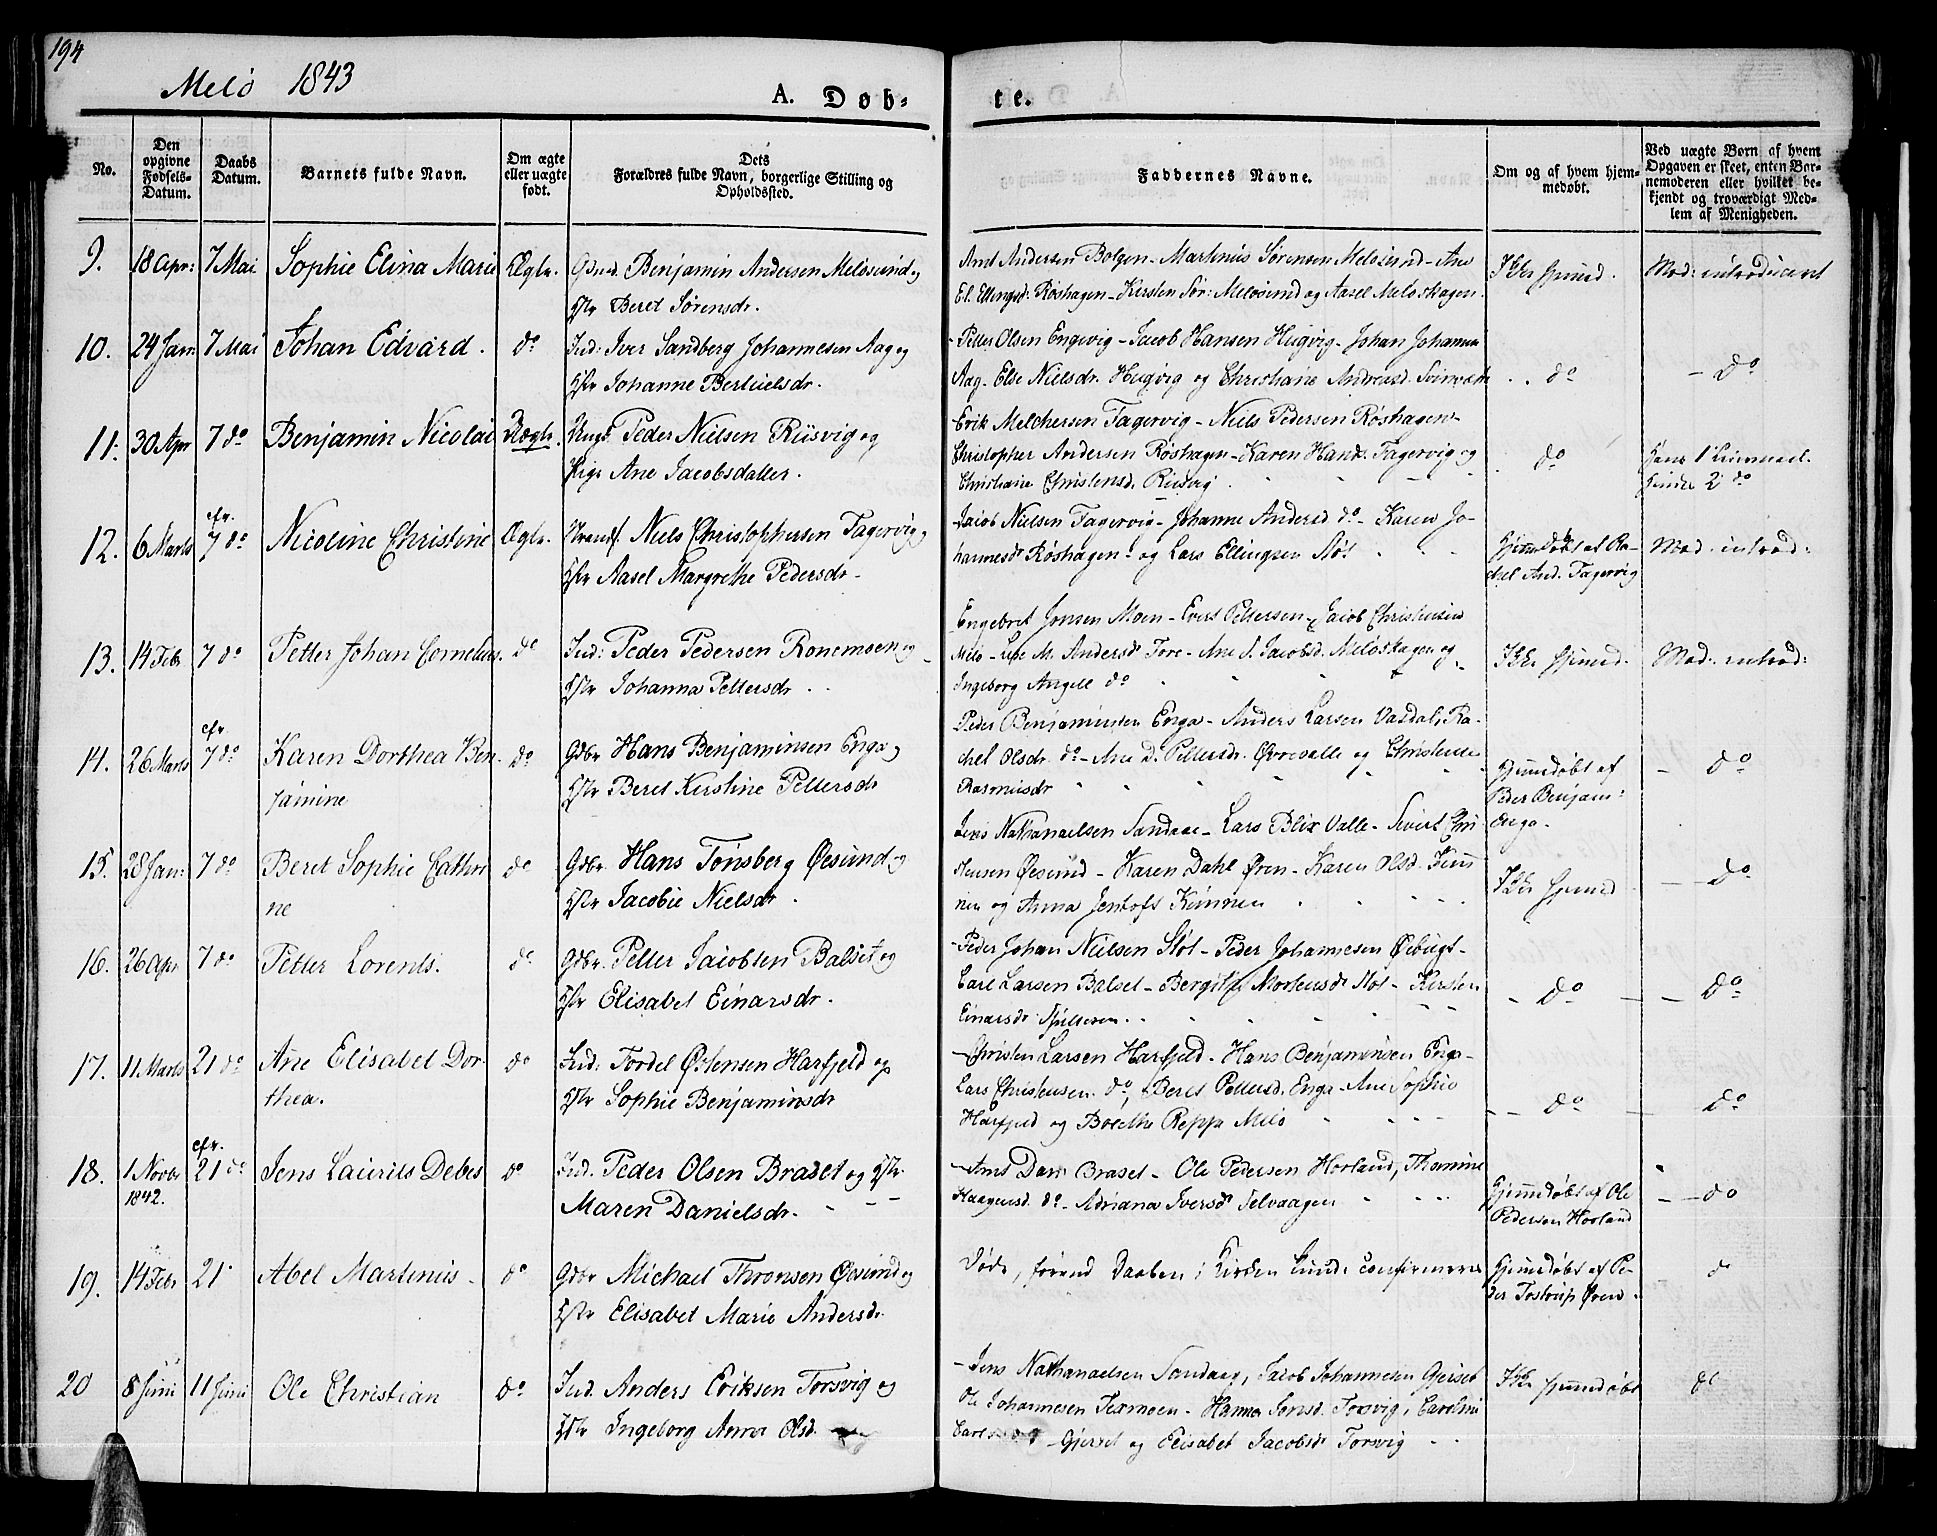 194
Melö 1843
A. Döb-
te.
No.
Den opgivne Fødsels-Datum.
Daabs Datum.
Barnets fulde Navn.
Om ægte eller uægte født.
Dets Forældres fulde Navn, borgerlige Stilling og Opholdssted.
Faddernes Navne.
Om og af hvem hjem-medøbt.
Ved uægte Børn af hvem Opgaven er skeet, enten Bar-nemoderen eller hvilket be-kjendt og troværdigt Med-lem af Menigheden.
9. 18 Apr: 7 Mai Sophie Elina Marie Ægte. Benjamin Andersen Melösund og
Beret Sörensdr.
Arnt Andersen Bolgen - Martinus Sörensen Melösund - Ane
El. Ellingsd: Röshagen - Kirsten Sör: Melösund og Aasel Melöskagen.
Ikke hjemd. Mod: introduceret
10. 24 Jan 7 Mai Johan Edvard. do Ind: Iver Sandberg Johannesen Aag og
Johanne Bertuelsdr.
- Petter Olsen Engevig - Jacob Hansen Hugvig - Johan Johannes
Aag - Else Nielsdr. Hugvig og Christiane Andreasd.
do - do
11. 30 Apr 7 do Benjamin Nicolai Uægte. Ungk. Peder Nielsen Riisvig og
Pige Ane Jacobsdatter.
Erik Melchersen Fagervig - Niels Pedersen Röshagen -
Christopher Andersen Röshagen - Karen Hansd. Fagervig og
Christiane Christensd. Riisvig
do Hans 1 Leiermaal.
hendes 2 do
12. 6 Marts cfr. 7 do Nicoline Christine Ægte. Niels Christophersen Fagervig og
Aasel Margrethe Pedersdr.
Jacob Nielsen Fagervig - Johanne Andersd do - Karen Jo-
hannesdr Röshagen - og Lars Ellingsen Stöt
Hjemdöbt af Ra-
chel And. Fagervig
Mod. introd:
13. 14 Febr 7 do Petter Johan Cornelius. do Ind: Peder Pedersen Ronemoen og
Johanna Pettersdr
Engebret Jonsen Moen - Evert Pettersen - Jacob Christensen
Melö - M. Andersdr Fore - Ane J. Jacobsd. Melöskagen og
Ingeborg Angell do
Ikke hjemd. Mod: introd:
14. 26 Marts cfr. 7 do Karen Dorthea Ben-
jamine
do Gdbr Hans Benjaminsen Enga og
Beret Kirstine Pettersdr
Peder Benjaminsen Enga - Anders Larsen Vasdal, Ra-
chel Olsdr. do - Ane D. Pettersdr. og Christense
Rasmusdr
Hjemdöbt af
Peder Benjam:
Enga.
- do
15. 28 Jan: 7 do Beret Sophie Cathri
ne
do Gdbr. Hans Tönsberg Öesund og
Jacobie Nielsdr
Jens Nathanaelsen Sandaae - Lars Blix Valle - Sivert Chri
stensen Öesund - Karen Dahl Ören - Karen Olsd. Kun
nen og Anna Jentoft Kunnen
Ikke hjemd - do
16. 26 Apr 7 do Petter Lorents. do Gdbr. Petter Jacobsen Balset og
Elisabet Einarsdr.
- Peder Johan Nielsen Stöt - Peder Johannesen
Carl Larsen Balset - Mortensdr Stöt - Kirsten
Einarsdr
- do - do
17. 11 Marts 21 do Ane Elisabet Dor-
thea.
do Ind: Tordel Östensen Harfjeld og
Sophie Benjaminsdr
- Christen Larsen Harfjeld - Hans Benjaminsen Enga -
Lars Christensen do, Beret Pettersd. Enga - Ane Sophie
Harfjeld og Bolethe Reppa Melö
- do do
18. 1 Novbr
1842.
cfr. 21 do Jens Laurits Debes do Ind. Peder Olsen Braset og
Maren Danielsdr.
- Arns Dan Braset - Ole Pedersen Horland, Thomine
Haagensd. do - Adriana Iversdr Selvaagen
Hjemdöbt af Ole
Pedersen Horland
- do
19. 14 Febr 21 Abel Martinus do Gdbr Michael Thronsen Öesund og
Elisabet Marie Andersdr
Döde, förend Daaben i Kirken kunde confirmeres
Hjemdöbt af Pe-
der Tostrup Ören
do
20 8 Juni 11 Juni Ole Christian do Ind. Anders Eriksen Torsvig og
Ingeborg Anna Olsd.
- Jens Nathanaelsen Sandaag, Jacob Johannesen Gjerset
Ole Johannesen - Hanna Jensd. Torsvig, Caroline
Gjerset og Elisabet Jacobsdr Torsvig
Ikke hjemdöbt do